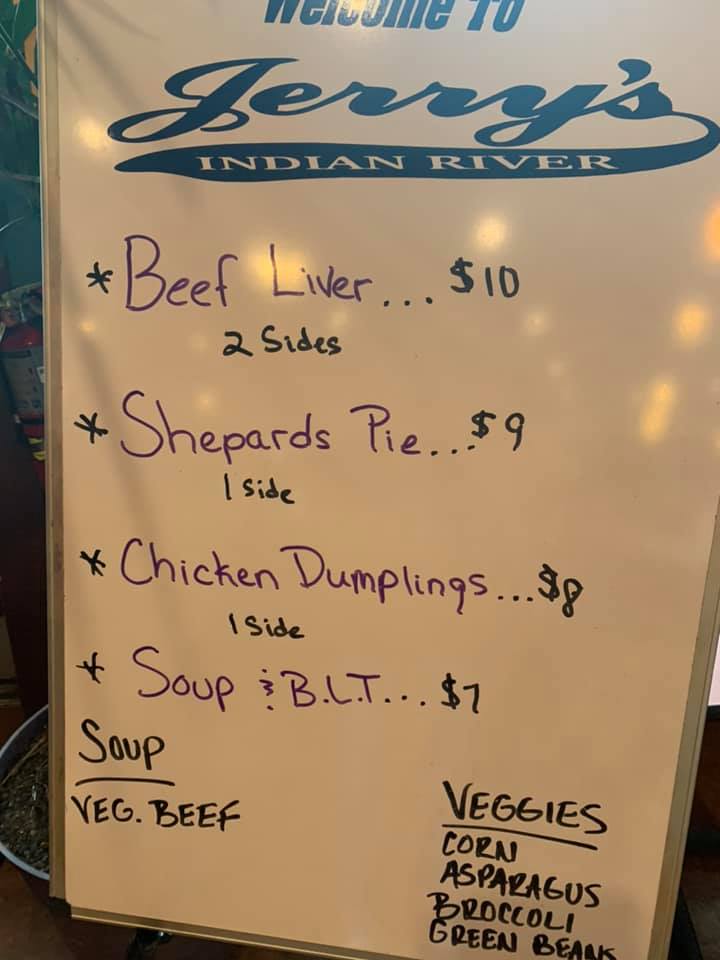 Welcome To
Jerry's
INDIAN RIVER
* Beef Liver... $10
2 Sides
* Shepards Pie... $9
1 Side
* Chicken Dumplings... $8
1 Side
* Soup & B.L.T... $7
Soup
VEG. BEEF
VEGGIES
CORN
ASPARAGUS
BROCCOLI
GREEN BEANS